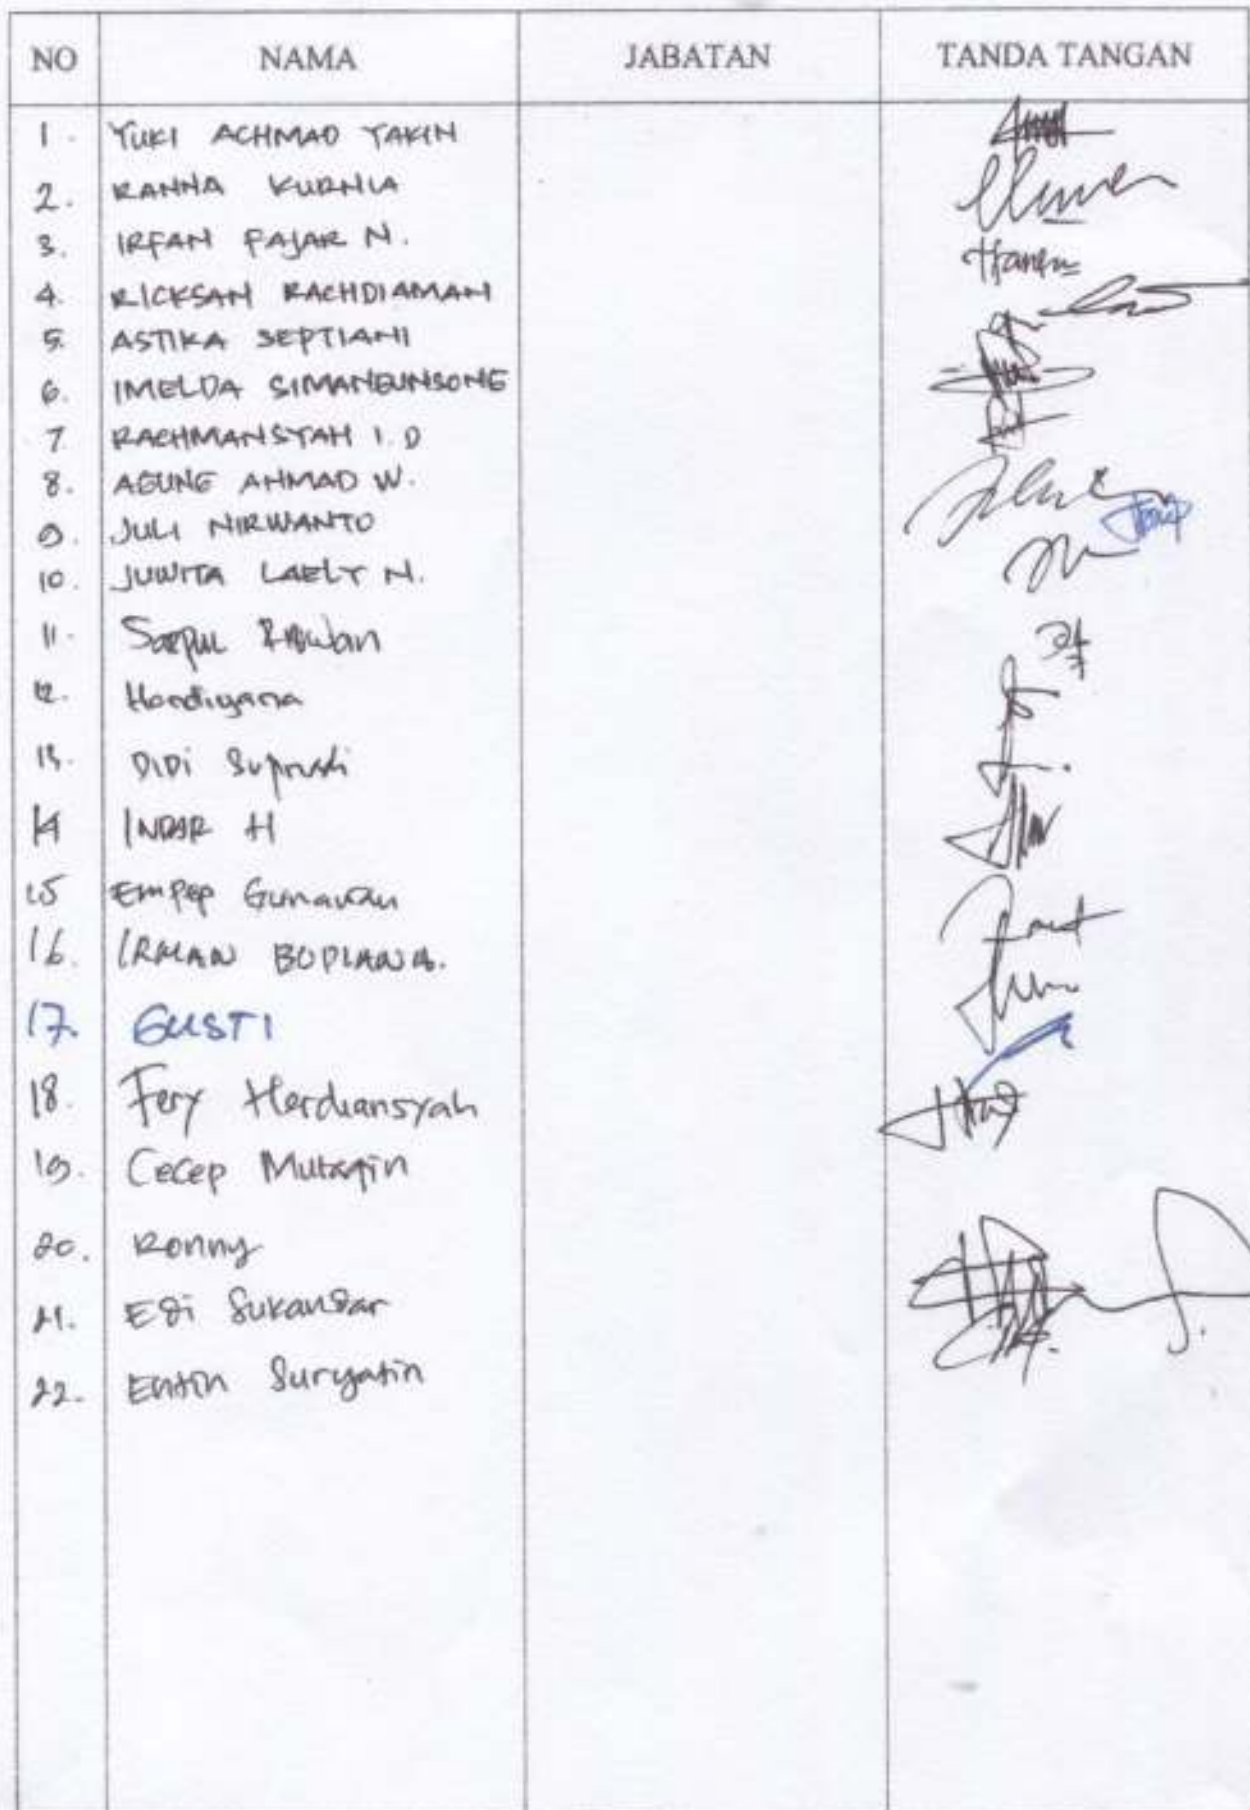 NO NAMA JABATAN TANDA TANGAN
1. YUKI ACHMAD YAKIN
2. RANNA KURNIA
3. IRFAN FAJAR N.
4. RICKSAN RACHDIAMAN
5. ASTIKA SEPTIANI
6. IMELDA SIMANGUNSONG
7. RACHMANSYAH I.D
8. AGUNG AHMAD W.
9. JULI NIRWANTO
10. JUWITA LAELY N.
11.
12. Hardiyana
13. DIDi
14 INDAR H
15 Empep Gunawan
16. IRMAN
17. GUSTI
18. Fery Herdiansyah
19. Cecep Mutaqin
20. Ronny
21. Edi Sukandar
22. Entin Suryatin